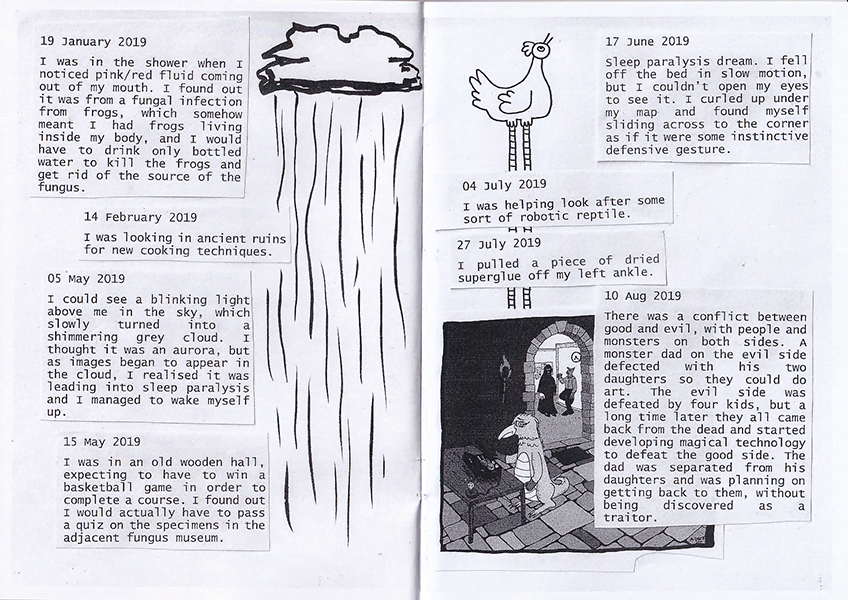 19 January 2019
I was in the shower when I
noticed pink/red fluid coming
out of my mouth. I found out
it was from a fungal infection
from frogs, which somehow
meant I had frogs living
inside my body, and I would
have to drink only bottled
water to kill the frogs and
get rid of the source of the
fungus.
14 February 2019
I was looking in ancient ruins
for new cooking techniques.
05 May 2019
I could see a blinking light
above me in the sky, which
slowly turned into a
shimmering grey cloud. I
thought it was an aurora, but
as images began to appear in
the cloud, I realised it was
leading into sleep paralysis
and I managed to wake myself
up.
15 May 2019
I was in an old wooden hall,
expecting to have to win a
basketball game in order to
complete a course. I found out
I would actually have to pass
a quiz on the specimens in the
adjacent fungus museum.
17 June 2019
Sleep paralysis dream. I fell
off the bed in slow motion,
but I couldn't open my eyes
to see it. I curled up under
my map and found myself
sliding across to the corner
as if it were some instinctive
defensive gesture.
04 July 2019
I was helping look after some
sort of robotic reptile.
27 July 2019
I pulled a piece of dried
superglue off my left ankle.
10 Aug 2019
There was a conflict between
good and evil, with people and
monsters on both sides. A
monster dad on the evil side
defected with his two
daughters so they could do
art. The evil side was
defeated by four kids, but a
long time later they all came
back from the dead and started
developing magical technology
to defeat the good side. The
dad was separated from his
daughters and was planning on
getting back to them, without
being discovered as a
traitor.